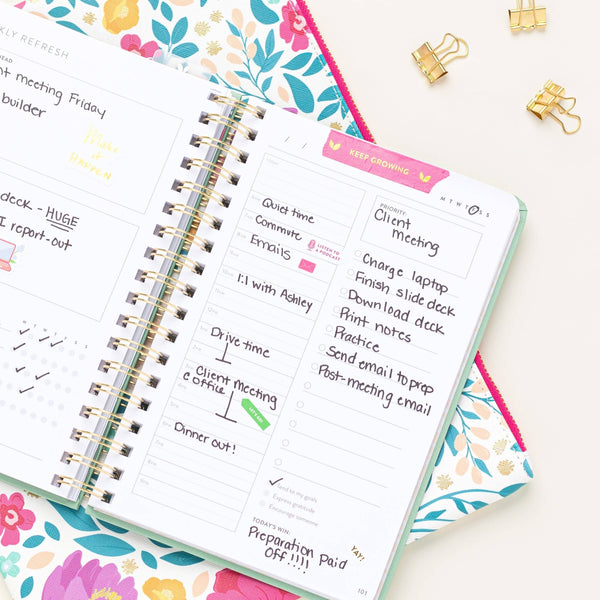 LY REFRESH
EAD
nt meeting Friday
builder
Make
it
Happen
deck - HUGE
I report-out
M T W T F S S
KEEP GROWING
M T W T F S S
Quiet time
Commute
LISTEN TO
A PODCAST
Emails
1:1 with Ashley
Drive time
Client meeting
@ office
LET'S GO!
Dinner out!
PRIORITY:
Client
meeting
Charge laptop
Finish slide deck
Download deck
Print notes
Practice
Send email to prep
Post-meeting email
Tend to my goals
Express gratitude
Encourage someone
TODAY'S WIN:
YAY!
Preparation Paid
Off!!!!
101